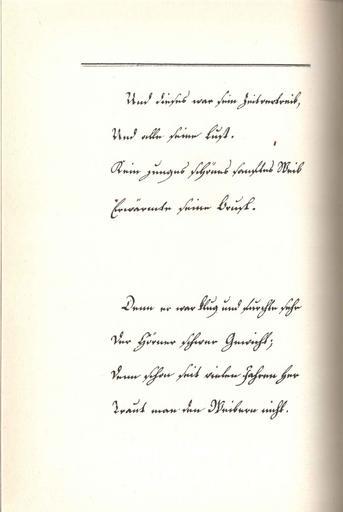 Und dieses war sein Zeitvertreib,
Und alle seine Lust.
Kein junges schönes sanftes Weib
Erwärmte seine Brust.
Denn er war klug und furchte sehr
Der Hörner schwer Gewicht;
Denn schon seit vielen Jahren her
Traut man den Weibern nicht.